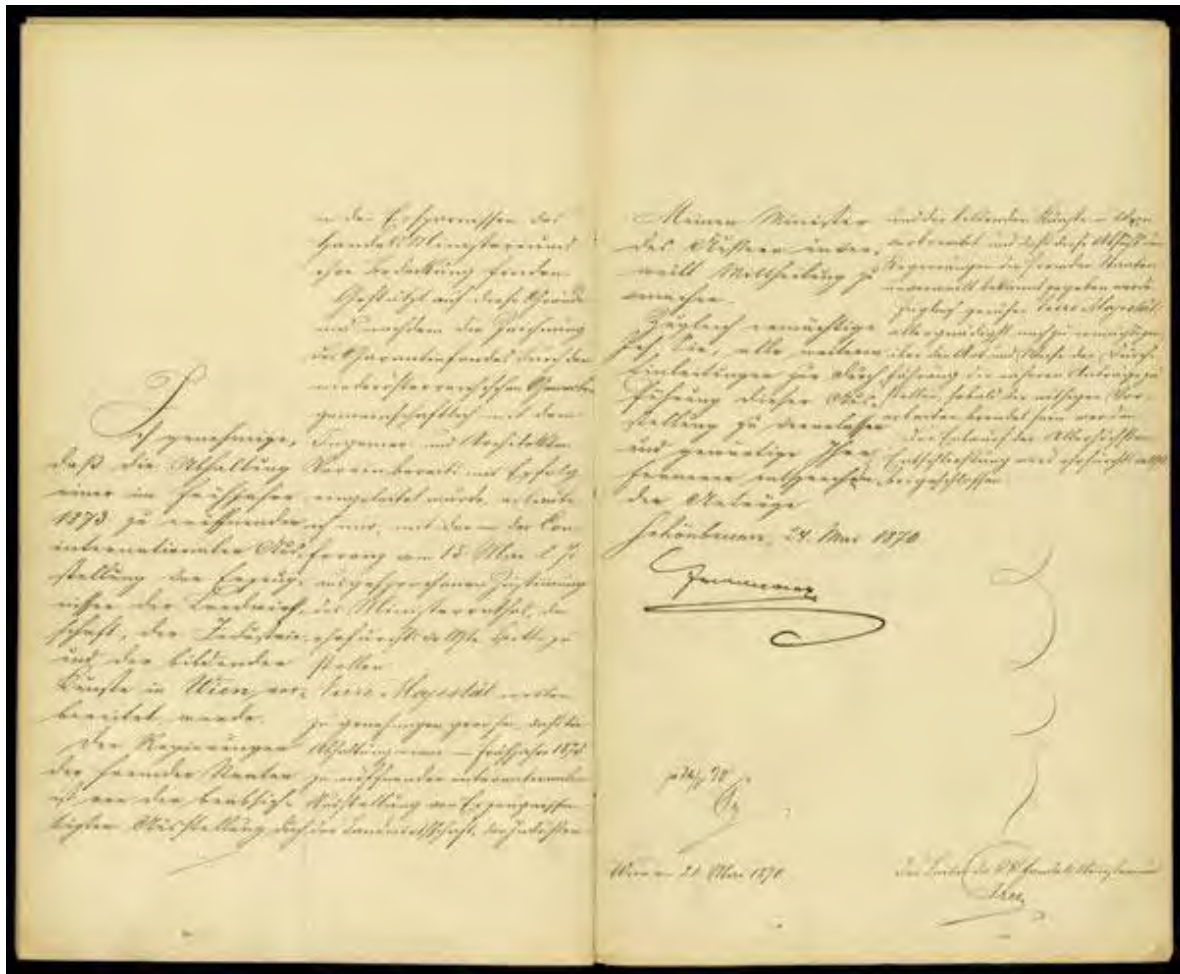 Ich genehmige,
daß die Abhaltung
einer im Frühjahre
1873 zu eröffnenden
internationalen Aus-
stellung der Erzeug-
nisse der Landwirth-
schaft, der Industrie
und der bildenden
Künste in Wien vor-
bereitet werde.
Den Regierungen
der fremden Staaten
ist von der beabsich-
tigten Ausstellung durch
in den Ersparnissen des
Handels Ministeriums
ihre Bedeckung finden.
Gestützt auf diese Gründe
und nachdem die Zeichnung
des Garantiefondes durch den
niederösterreichischen Gewerbe-
gemeinschaftlich mit dem
Ingenieur- und Architekten
Verein bereits mit Erfolg
eingeleitet wurde, erlaube
ich mir, mit der in der Con-
ferenz am 13. Mai l. J.
ausgesprochenen Zustimmung
des Ministerrathes, die
ehrfurchtsvollste Bitte zu
stellen
Eure Majestät wollen
zu genehmigen geruhen, daß die
Abhaltung einer im Frühjahre 1873
zu eröffnenden internationalen
Ausstellung von Erzeugnissen
der Landwirthschaft, der Industrie
Meinen Minister
des Äußern unver-
weilt Mittheilung zu
machen.
Zugleich ermächtige
Ich Sie, alle weiteren
Einleitungen zur Durch-
führung dieser Aus-
stellung zu veranlassen
und gewärtige Ihre
ferneren entsprechen-
den Anträge.
Schönbrunn, 24. Mai 1870
und der bildenden Künste in Wien
vorbereitet und daß diese Absicht den
Regierungen der fremden Staaten
unverweilt bekannt gegeben werde.
Zugleich geruhen Eure Majestät
allergnädigst mich zu ermächtigen,
über die Art und Weise der Durch-
führung die näheren Anträge zu
stellen, sobald die nöthigen Vor-
arbeiten beendet sein werden.
Der Entwurf der Allerhöchsten
Entschließung wird ehrfurchtsvollst
beigeschlossen.
Wien am 21. Mai 1870
Der Leiter des k.k. Handels Ministeriums